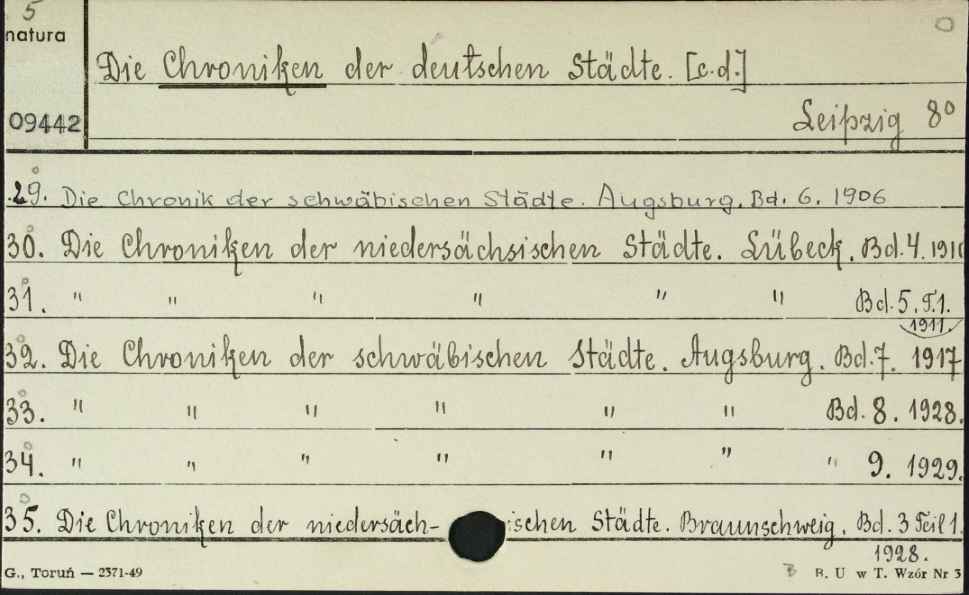 5
natura
Die Chroniken der deutschen Städte. [c.d.]
09442
Leipzig 8°
29. Die Chronik der schwäbischen Städte. Augsburg. Bd. 6. 1906
30. Die Chroniken der niedersächsischen Städte. Lübeck. Bd. 4. 1910
31. " " " " " " Bd. 5. T.1.
1911.
32. Die Chroniken der schwäbischen Städte. Augsburg. Bd. 7. 1917
33. " " " " " " Bd. 8. 1928.
34. " " " " " " " 9. 1929.
35. Die Chroniken der niedersäch- ischen Städte. Braunschweig. Bd. 3 Teil 1.
1928.
G., Toruń — 2371-49
B. U w T. Wzór Nr 3